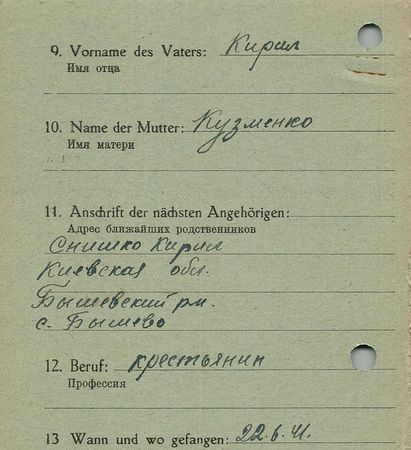 9. Vorname des Vaters: Кирил
Имя отца
10. Name der Mutter: Кузменко
Имя матери
11. Anschrift der nächsten Angehörigen:
Адрес ближайших родственников
Снишко Кирил
Киевская обл.
Бышевский рн.
с. Бышево
12. Beruf: крестьянин
Профессия
13 Wann und wo gefangen: 22.6.41.